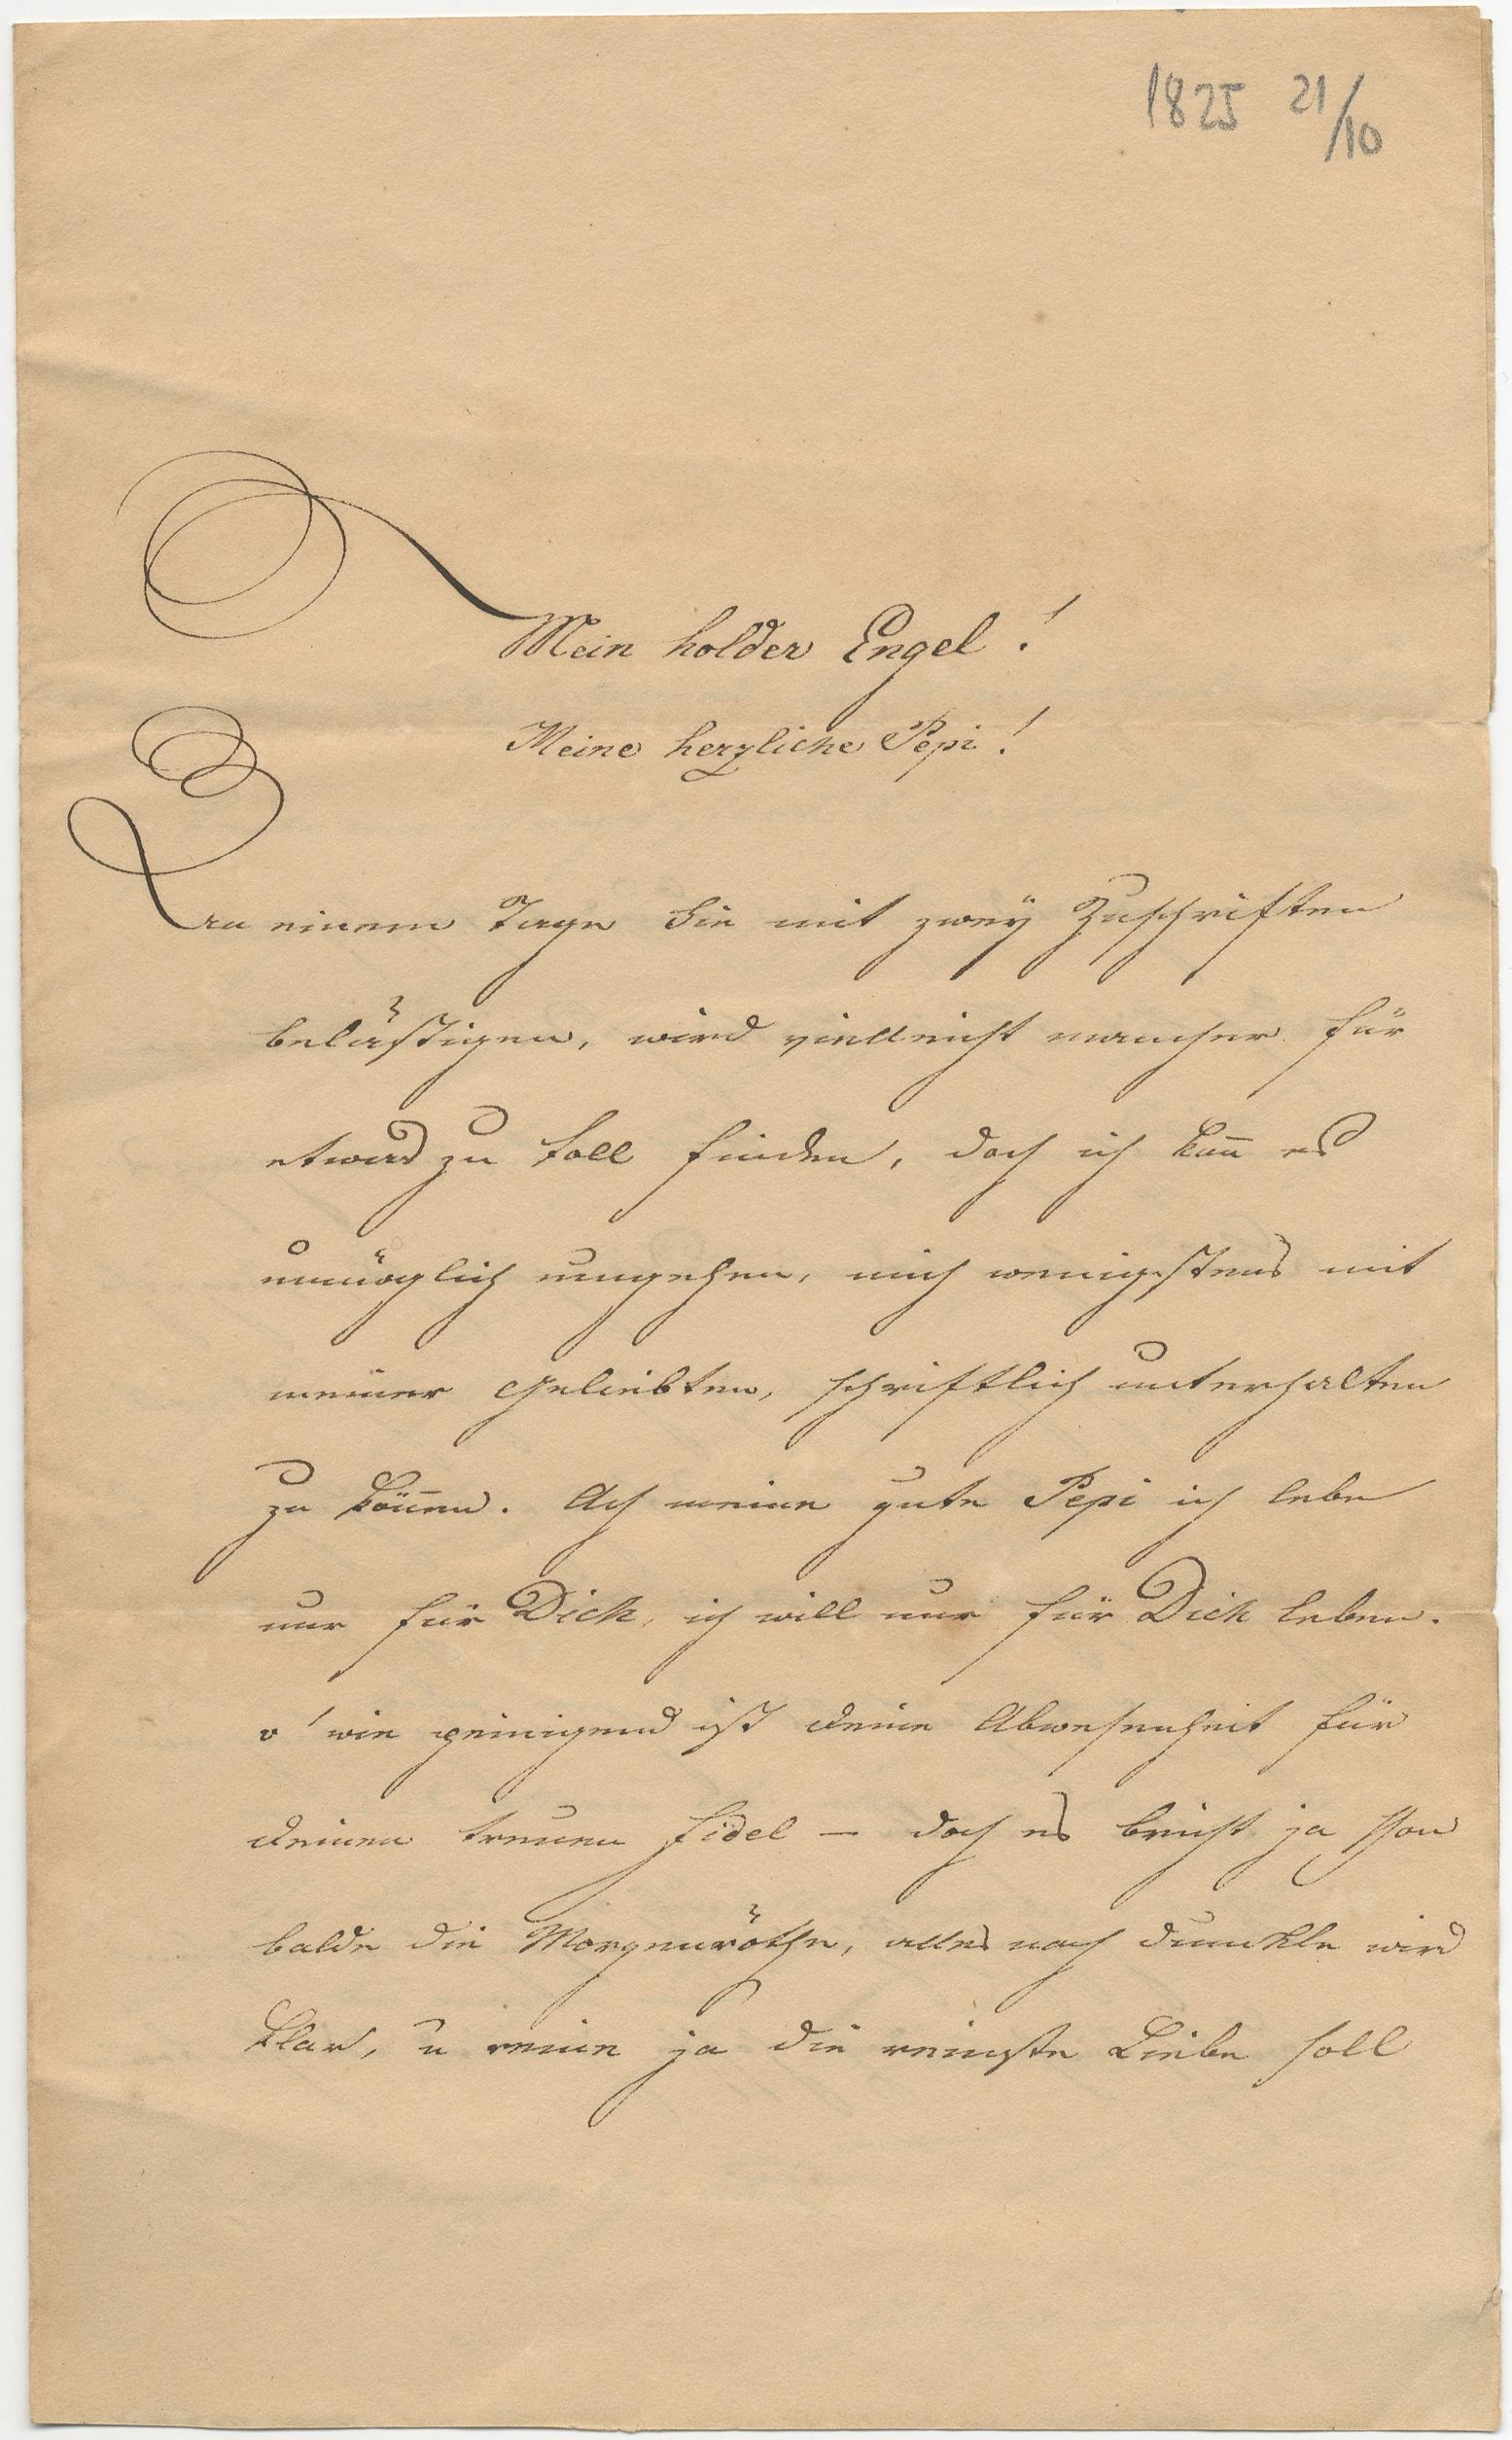 1825 21/10
Mein holder Engel!
Meine herzliche Pepi!
an einem Tage Sie mit zweÿ Zuschriften
belästigen, wird vielleicht mancher für
etwas zu toll finden, doch ich kan̅ es
unmöglich umgehen, mich wenigstens mit
meiner Geliebten, schriftlich unterhalten
zu kön̅en. Ach meine gute Pepi ich lebe
nur für Dich, ich will nur für Dich leben.
o' wie peinigend ist deine Abwesenheit für
deinen treuen Fidel – doch es bricht ja schon
balde die Morgenröthe, alles noch dunkle wird
klar, u reine ja die reinste Liebe soll